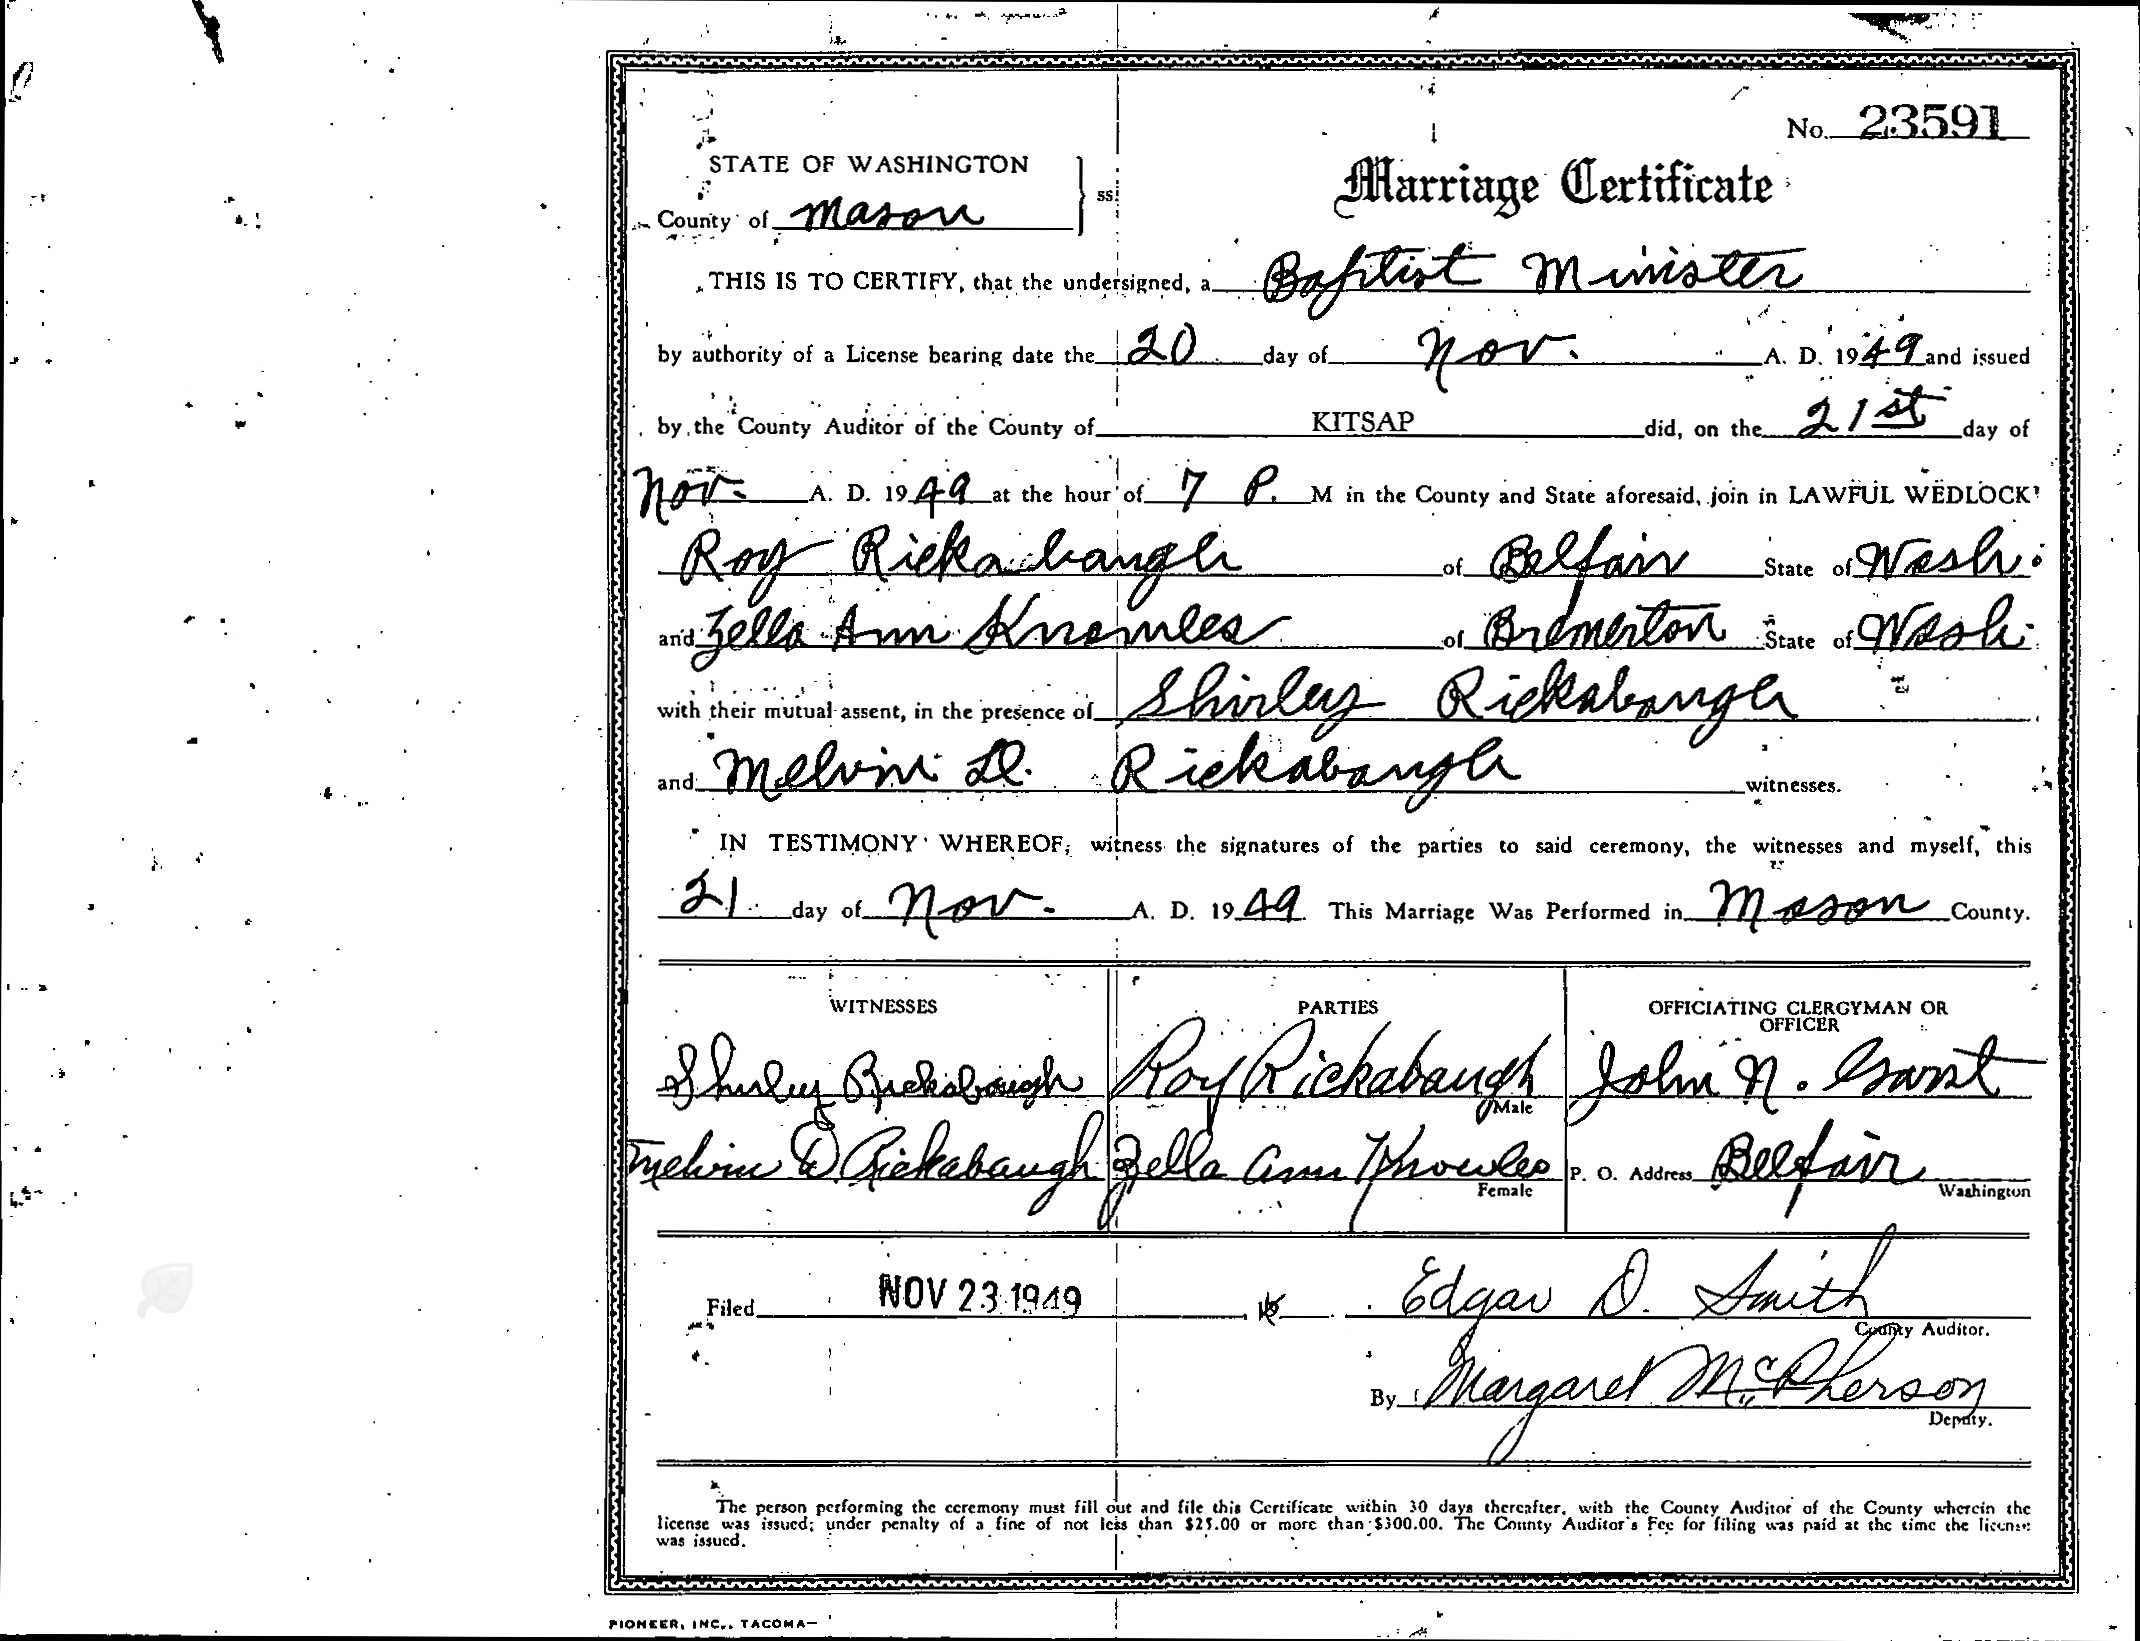 No. 23591
STATE OF WASHINGTON
County of Mason
ss
Marriage Certificate
THIS IS TO CERTIFY, that the undersigned, a Baptist Minister
by authority of a License bearing date the 20 day of Nov. A. D. 1949 and issued
by the County Auditor of the County of KITSAP did, on the 21st day of
Nov. A. D. 1949 at the hour of 7 P. M in the County and State aforesaid, join in LAWFUL WEDLOCK
Roy Rickabaugh of Belfair State of Wash.
and Zella Ann Knowles of Bremerton State of Wash.
with their mutual assent, in the presence of Shirley Rickabaugh
and Melvin D. Rickabaugh witnesses.
IN TESTIMONY WHEREOF, witness the signatures of the parties to said ceremony, the witnesses and myself, this
21 day of Nov. A. D. 1949 This Marriage Was Performed in Mason County.
WITNESSES
PARTIES
OFFICIATING CLERGYMAN OR
OFFICER
Shirley Rickabaugh
Roy Rickabaugh
Male
John N.
Melvin D. Rickabaugh
Zella Ann Knowles
Female
P. O. Address Belfair
Washington
Filed NOV 23 1949
Edgar D. Smith
County Auditor.
By Margaret McPherson
Deputy.
The person performing the ceremony must fill out and file this Certificate within 30 days thereafter, with the County Auditor of the County wherein the
license was issued; under penalty of a fine of not less than $25.00 or more than $300.00. The County Auditor's Fee for filing was paid at the time the license
was issued.
PIONEER, INC., TACOMA—